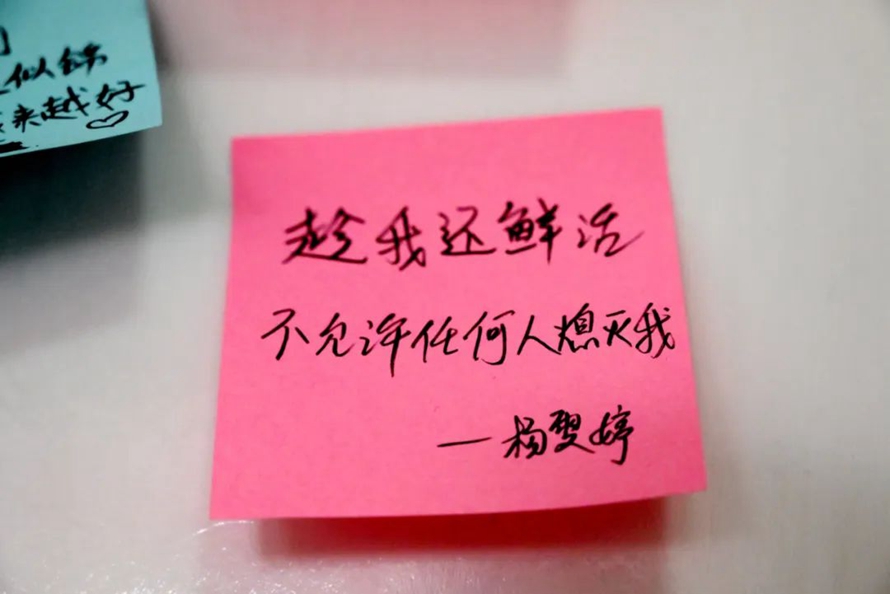 似锦
来越好
趁我还鲜活
不允许任何人熄灭我
—杨雯婷